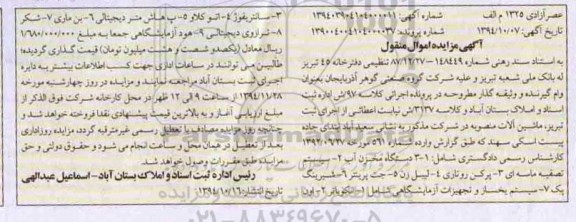 عصر آزادی ۱۳۲۵ م الف
تاریخ آگهی: ۱۳۹۴/۱۰/۰۷
شماره پرونده:
آگهی مزایده اموال منقول
به استناد سند رهنی شماره ۱۴۸۴۴۹ - ۸۷/۱۲/۲۷ تنظیمی دفترخانه ۴۵ تبریز
له بانک ملی شعبه تبریز و علیه شرکت گروه صنعتی گوهر آذربایجان بعنوان
وام گیرنده و وثیقه گذار مطروحه در پرونده اجرائی کلاسه ۹۷/ش اداره ثبت
اسناد و املاک بستان آباد و کلاسه ۳۱۳۷/ش نیابت اعطائی از اجرای ثبت
تبریز، ماشین آلات منصوبه در شرکت مذکور به نشانی بستان آباد ابتدای جاده
پیست اسکی سهند که طبق گزارش وارده شماره
کارشناس رسمی دادگستری شامل: ۱-۳ دستگاه مخزن آب ۲- سیستم
تصفیه ماسه ای ۳- پرکن روتاری ۴- لیبل زن ۵- جت پرینتر ۶- شیرینگ
پک ۷- سیستم یخساز و تجهیزات آزمایشگاهی شامل ۱- انکوباتور ۲- اون
۳- سانتریفوژ ۴- اتوکلاو ۵- پ هاش متر دیجیتالی ۶- بن ماری ۷- شیکر
۸- ترازوی دیجیتالی ۹- هود آزمایشگاهی جمعا به مبلغ ۱/۶۸۰/۰۰۰/۰۰۰
ریال معادل (یکصد و شصت و هشت میلیون تومان) قیمت گذاری گردیده؛
طالبین می توانند در ساعات اداری جهت کسب اطلاعات بیشتر به دایره
اجرای ثبت بستان آباد مراجعه نمایند و مزایده در روز چهارشنبه مورخه
۱۳۹۴/۱۱/۲۸ از ساعت ۹ الی ۱۲ ظهر در محل کارخانه شرکت فوق الذکر از
مبلغ ارزیابی آغاز و به بالاترین قیمت پیشنهادی نقدا فروخته خواهد شد و
چنانچه روز مزایده مصادف با تعطیل رسمی غیرمترقبه گردد، مزایده روز اداری
بعد از تعطیل در همان محل و ساعت انجام می شود و حقوق دولتی و حق
مزایده طبق مقررات وصول خواهد شد.
رئیس اداره ثبت اسناد و املاک بستان آباد - اسماعیل عبدالهی
تاریخ انتشار: ۱۳۹۴/۱۰/۱۶
۰۲۱-۸۸۳۴۹۶۷۰-۵